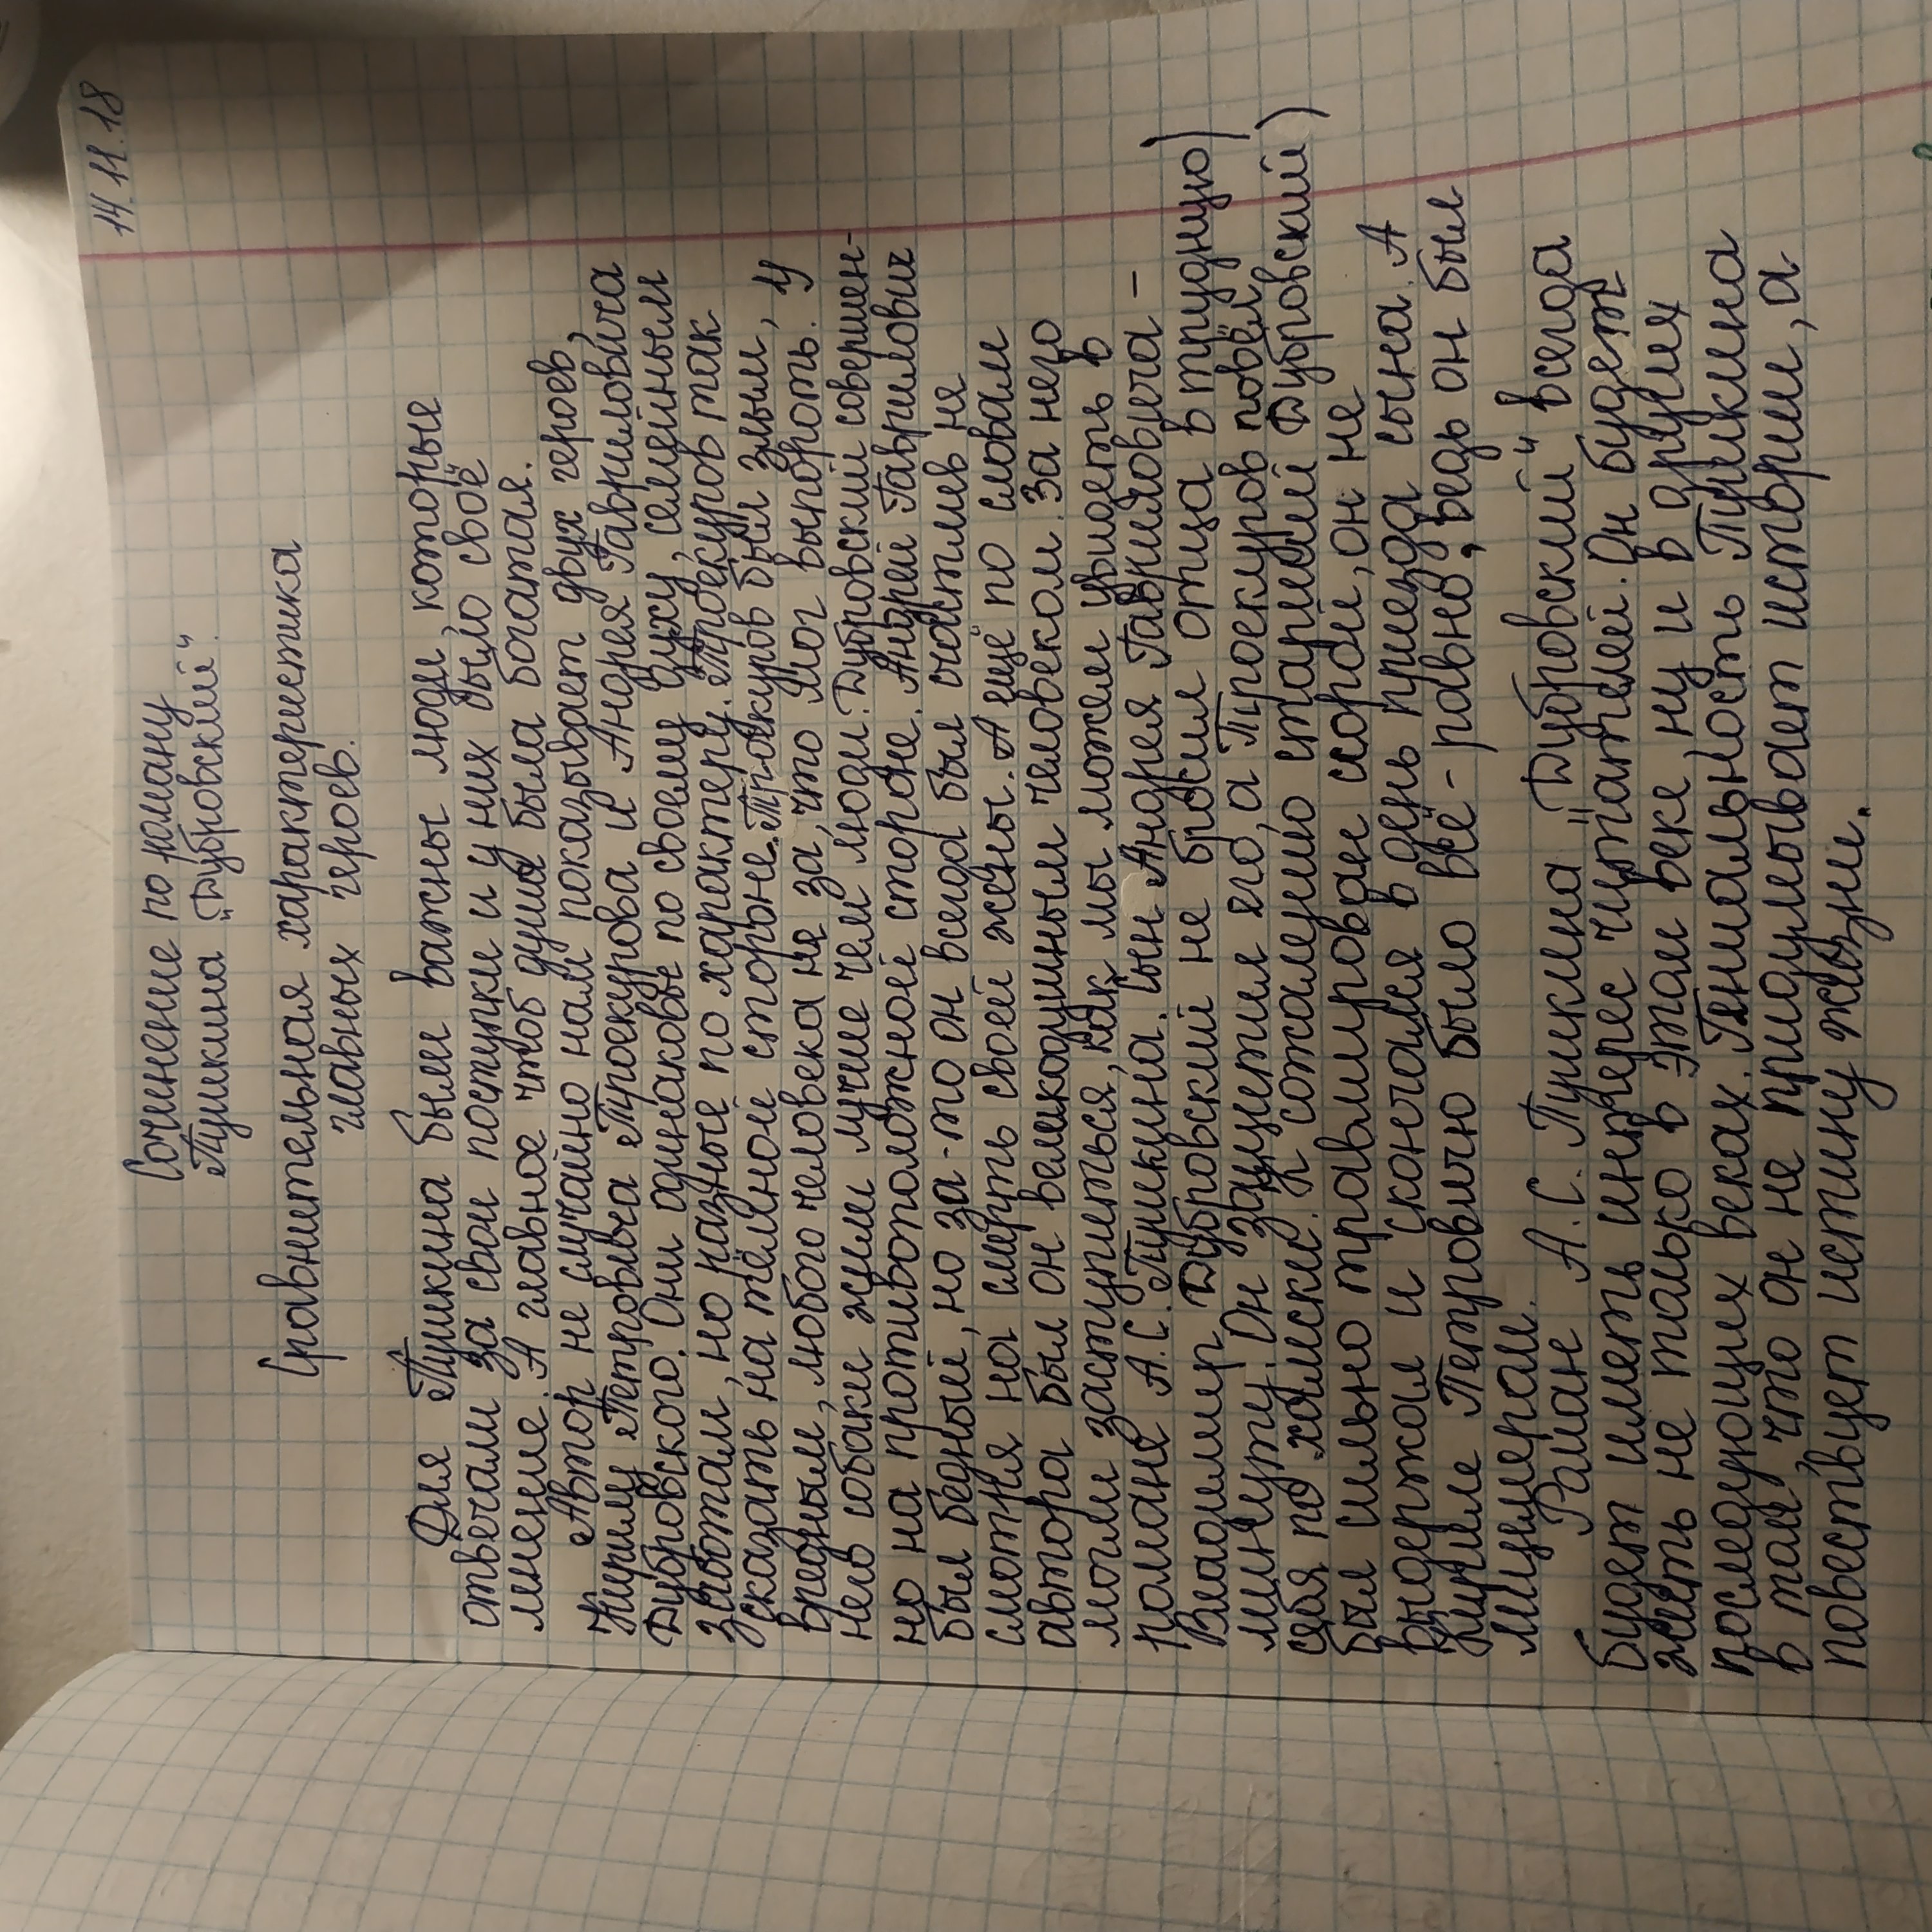 14.11.18
Сочинение по роману
Пушкина "Дубровский".
Сравнительная характеристика
главных героев.
Для Пушкина были важны люди, которые
отвечали за свои поступки и у них было своё
мнение. А главное чтоб душа была богатая.
Автор не случайно нам показывает двух героев,
Кирилу Петровыча Троекурова и Андрея Гавриловича
Дубровского. Они одинаковые по своему духу, семейным
заботам, но разные по характеру. Троекуров так
сказать на тёмной стороне. Троекуров был злым,
вредным, любого человека не за, что мог выпороть. У
него собаки жили лучше чем люди. Дубровский совершен-
но на противоположной стороне. Андрей Гаврилович
был бедный, но за-то он всегда был счастлив не
смотня на смерть своей жены. А ещё по словам
автора был он великодушным человеком. За него
могли заступиться, как мы можем увидеть в
романе А.С. Пушкина. Сын Андрея Гавриловеча -
Владимир Дубровский не бросил отца в трудную
минуту. Он защетил его, а Троекуров повёл
себя по хамски. К сожалению старший Дубровский
был сильно травмирован сорой, он не
выдержал и скончался в день приезда сына. А
Кириле Петровичю было всё-равно, ведь он был
лицимерам.
Роман А.С. Пушкина "Дубровский" всегда
будет иметь интерес читателей. Он будет
жить не только в этом веке ну и в других
последующих веках. Гениальность Пушкина
в том, что он не придумывает истории, а
повествует истину жизни.